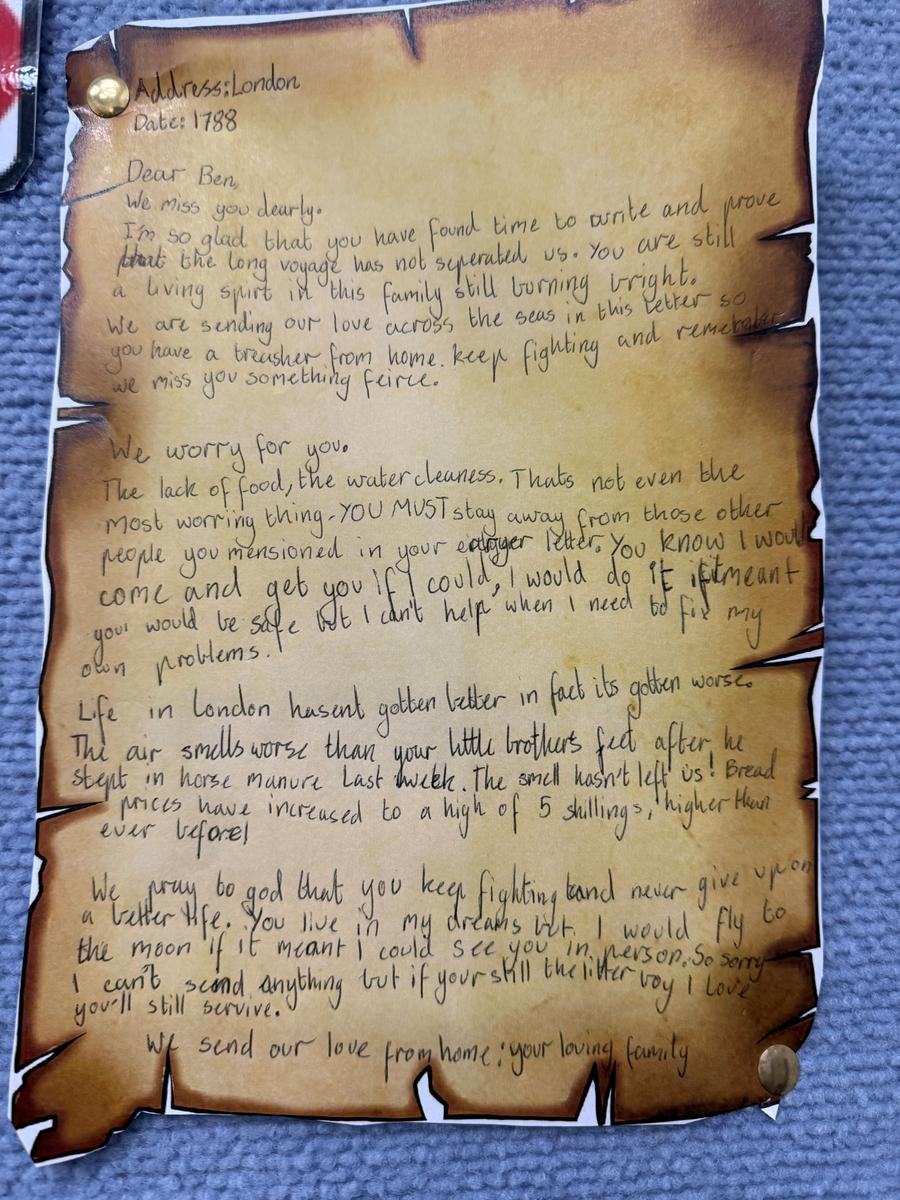 Address: London
Date: 1788
Dear Ben,
We miss you dearly.
I'm so glad that you have found time to write and prove
that the long voyage has not seperated us. You are still
a living spirt in this family still burning bright.
We are sending our love across the seas in this letter so
you have a treasher from home. keep fighting and remember
we miss you something feirce.
We worry for you.
The lack of food, the water cleaness. Thats not even the
most worring thing - YOU MUST stay away from those other
people you mensioned in your letter. You know I would
come and get you if I could, I would do it if it meant
your would be safe but I can't help when I need to fix my
own problems.
Life in London hasent gotten better in fact its gotten worse.
The air smells worse than your little brother's feet after he
stept in horse manure last week. The smell hasn't left us! Bread
prices have increased to a high of 5 shillings, higher than
ever before!
We pray to god that you keep fighting and never give up on
a better life. You live in my dreams but I would fly to
the moon if it meant I could see you in person. So sorry
I can't send anything but if your still the litter boy I love
you'll still servive.
We send our love from home: your loving family